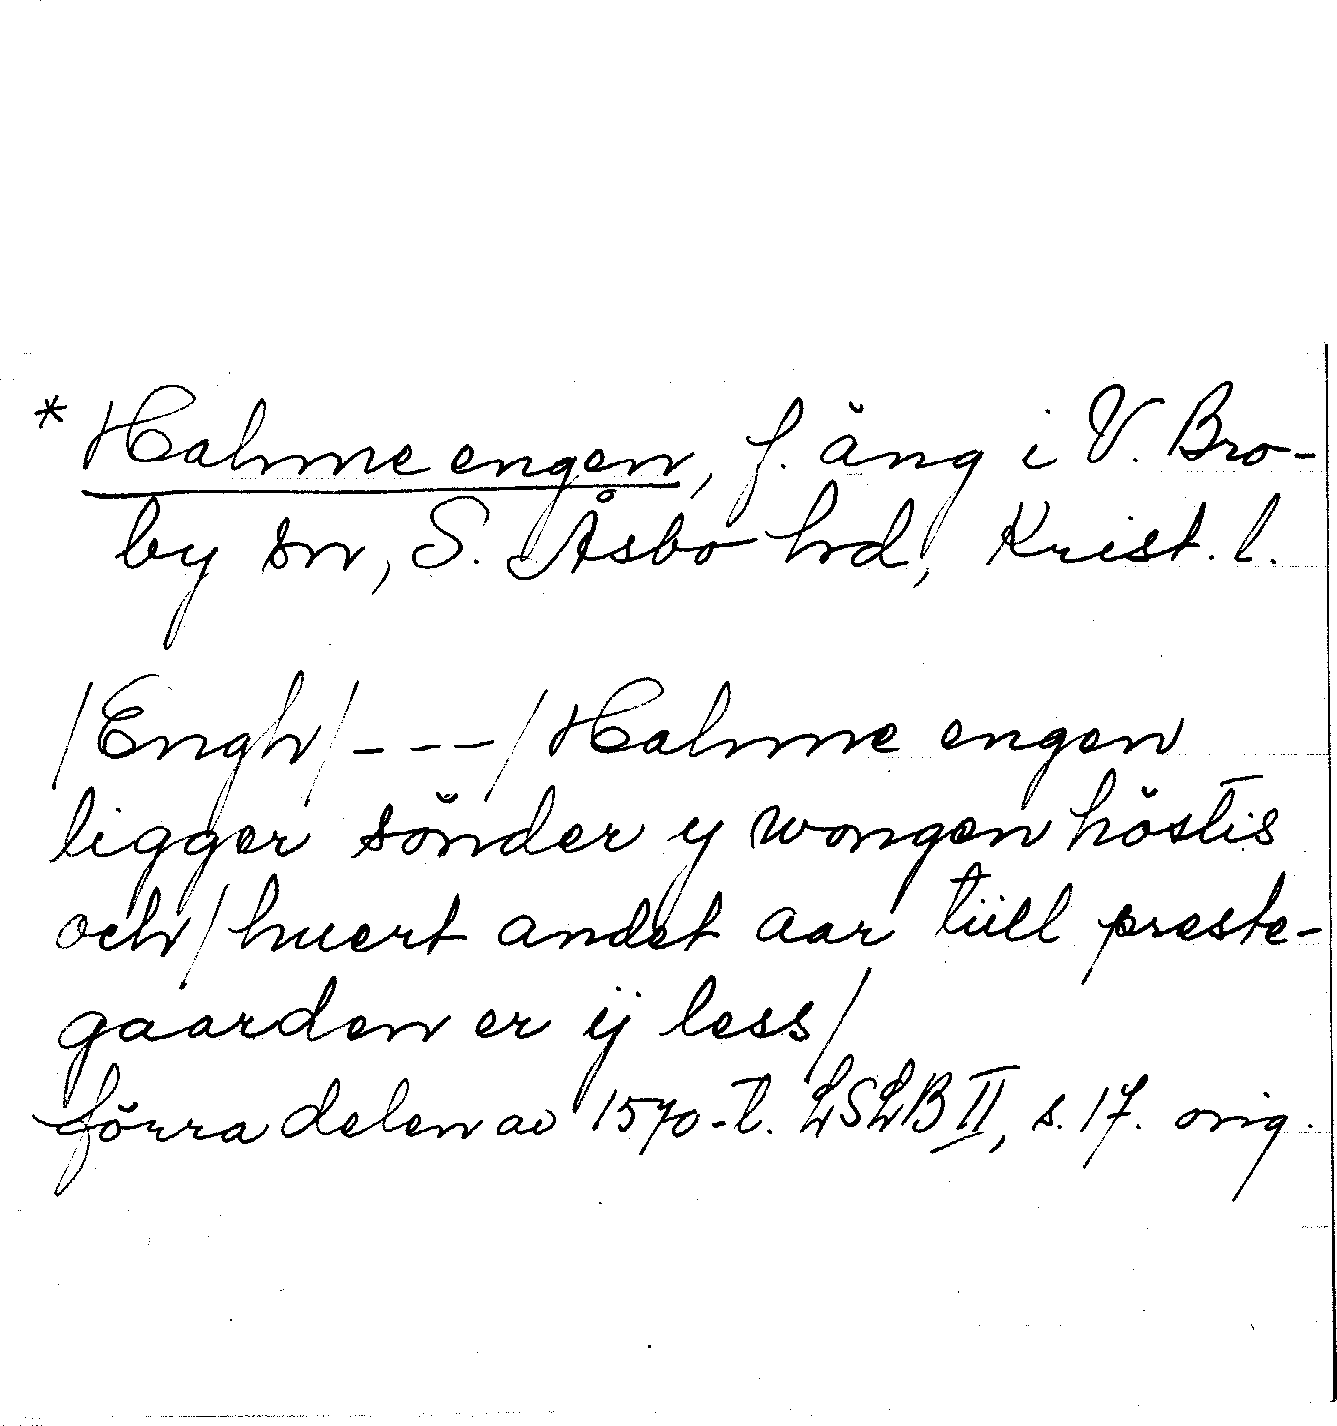 * Halme engen, f. äng i V. Bro-
by sn, S. Åsbo hd, Krist. l.
/Engh/ - - - / Halme engen
ligger sönder y wongen höstis
och / huert andet aar tiill preste-
gaarden er ij less /
förra delen av 1570-t. LSLB II, s. 17. orig.